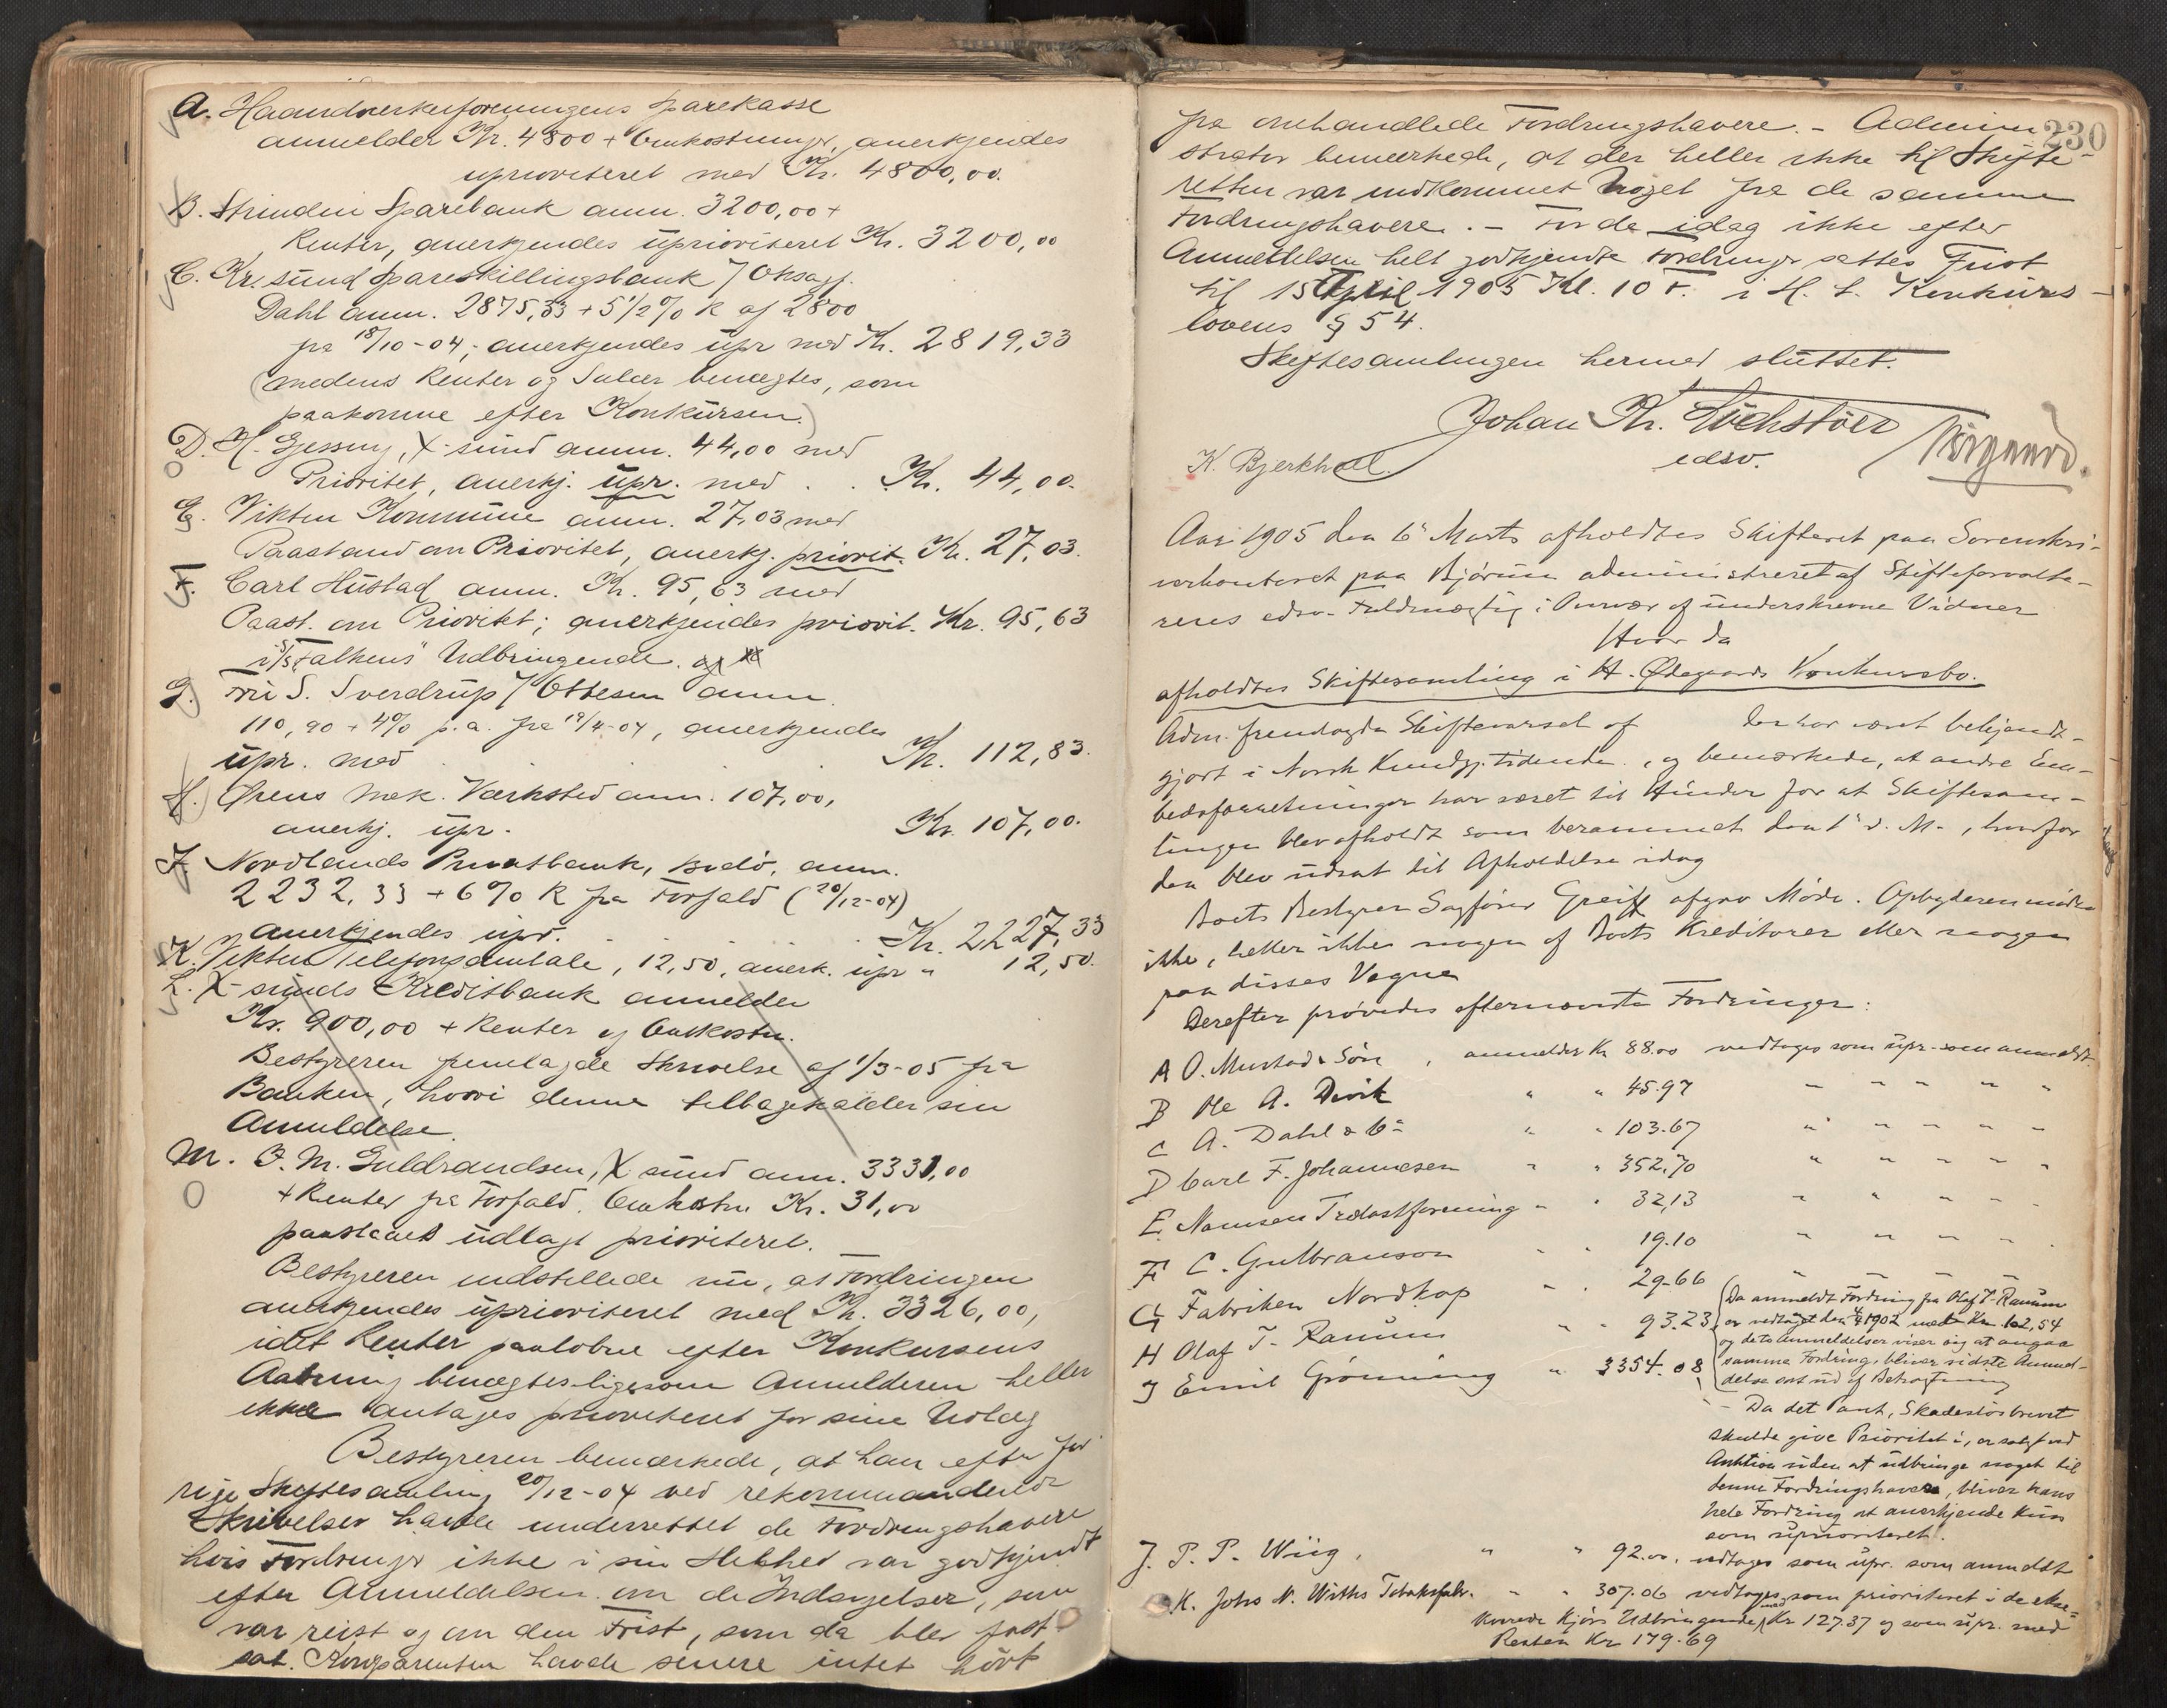 A. Haandverkerforeningens Sparekasse
anmelder Kr. 4800 + Omkostninger, anerkjendes
uprioriteret med Kr. 4800,00.
B. Strinden Sparebank anm. 3200,00 +
Renter, anerkjendes uprioriteret Kr. 3200,00
C. Kr.sund Spareskillingsbank / Oksagf.
Dahl anm. 2875,33 + 5 1/2 % R af 2800
fra 18/10-04; anerkjendes upr med Kr. 2819,33
(medens Renter og Salær benægtes, som
paakomne efter Konkursen.)
D. H. Gjessing, X-sund anm. 44,00 med
Prioritet, anerkj. upr. med . . Kr. 44,00.
E. Vikten Kommune anm. 27,03 med
Paastand om Prioritet, anerkj. priorit. Kr. 27,03.
F. Carl Hustad anm. Kr. 95,63 med
Paast. om Prioritet; anerkjendes priorit. Kr. 95,63
i S/S "Falkens" Udbringende.
G. Frii S. Sverdrup / Ottesen anm.
110,90 + 4% p.a. fra 19/4-04, anerkjendes
upr. med . . . Kr. 112,83.
H. Ørens mek. Værksted anm. 107,00,
anerkj. upr. Kr. 107,00.
J. Nordlands Privatbank, Bodö, anm.
2232,33 + 6% R fra Forfald (20/12-04)
anerkjendes upr. . . . Kr. 2227,33
K. Vikten Telefonsamtale, 12,50, anerk. upr " 12,50.
L. X-sunds Kreditbank anmelder
Kr. 900,00 + Renter og Omkostn.
Bestyreren fremlagde Skrivelse af 1/3-05 fra
Banken, hvori denne tilbagekalder sin
Anmeldelse.
M. O. M. Guldrandsen, X sund anm. 3331,00
+ Renter fra Forfald. Omkostn Kr. 31,00
paastaaes udlagt prioriteret.
Bestyreren indstillede nu, at Fordringen
anerkjendes uprioriteret med Kr. 3326,00,
idet Renter paaløbne efter Konkursens
Aabning benægtes ligesom Anmelderen heller
ikke antages prioriteret for sine Udlæg
Bestyreren bemærkede, at han efter for
rige Skiftesamling 20/12-04 ved rekommanderede
Skrivelser havde underrettet de Fordringshavere
hvis Fordringer ikke i sin Helhet var godkjendt
efter Anmeldelsen om de Indsigelser, som
var reist og om den Frist, som da blev fast-
sat. Komparenten havde senere intet hört
230
fra omhandlede Fordringshavere. - Admini-
strator bemærkede, at der heller ikke til Skifte-
retten var indkommet noget fra de samme
Fordringshavere. - For de idag ikke efter
Anmeldelsen helt godkjendte Fordringer sattes Frist
til 15 April 1905 Kl. 10 F. i H. t. Konkurs-
lovens § 54.
Skiftesamlingen hermed sluttet.
Johan Kr.
K. Bjerkholl. edsv.
Aar 1905 den 6" Marts afholdtes Skifteret paa Sorenskri-
verkontoret paa Bjørum administreret af Skifteforvalte-
rens edsv. Fuldmægtig i Overvær af underskrevne Vidner
Hvor da
afholdtes Skiftesamling i H. Ødegaards Konkursbo.
Adm. fremlagde Skiftevarsel af der har været bekjendt-
gjort i Norsk Kundgj.tidende, og bemærkede, at andre Em-
bedsforretninger har været til Hinder for at Skiftesam-
lingen blev afholdt som berammet den 1" d. M., hvorfor
den blev udsat til Afholdelse idag
Boets Bestyrer Sagfører Greiff afgav Møde. Opbyderen mødte
ikke, heller ikke nogen af Boets Kreditorer eller nogen
paa disses Vegne
Derefter prøvedes efternævnte Fordringer:
A O. Mustad & Søn, anmelder Kr 88.00 vedtages som upr. som anmeldt.
B Ole A. Devik " " 45.97 " " " " "
C A. Dahl & Co " " 103.67 " " " " "
D Carl F. Johannesen " " 352.70 " " " " "
E. Namsen Trælastforening " " 32,13 " " " " "
F C. Gulbranson " " 19.10 " " " " "
G Fabriken Nordkap " " 29.66 " " " "
H Olaf T. Ranum " " 93.23
(Da anmeldt Fordring fra Olaf T. Ranum
er vedtaget den 1902 med Kr. 102,54
og dets Anmeldelser viser sig at angaa
samme Fordring, bliver sidste Anmel-
delse sat ud af Betragtning
J Emil Grønning " 3354.08
- Da det Pant, Skadesløsbrevet
skulde give Prioritet i, er solgt ved
Auktion uden at udbringe noget til
denne Fordringshaver, bliver hans
hele Fordring at anerkjende kun
som uprioriteret.
J. P. P. Wiig, " " 92.00. vedtages som upr. som anmeldt
K. Johs N. Withs Tobaksfabr. " " 307.06 vedtages som prioriteret i de ekse-
kverede Kjörs Udbringende med Kr 127.37 og som upr. med
Resten Kr 179.69